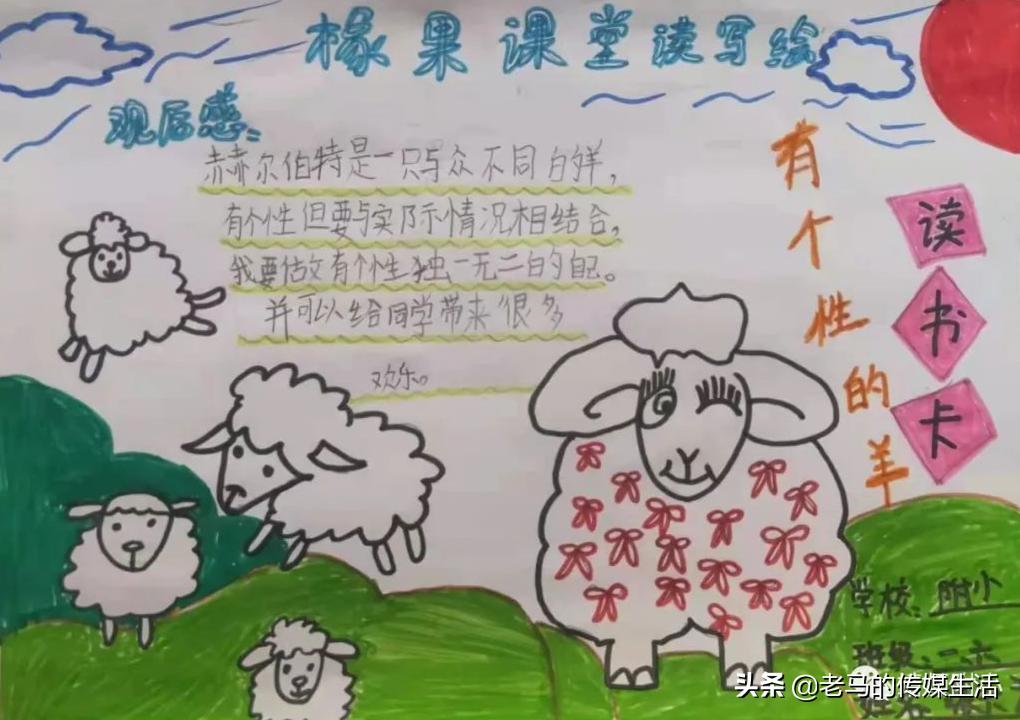 橡果课堂读写绘
观后感：
赫尔伯特是一只与众不同的羊，
有个性但要与实际情况相结合，
我要做有个性独一无二的自己。
并可以给同学带来很多
欢乐。
有个性的羊
读书卡
学校：附小
班级：一、六
头条 @老马的传媒生活